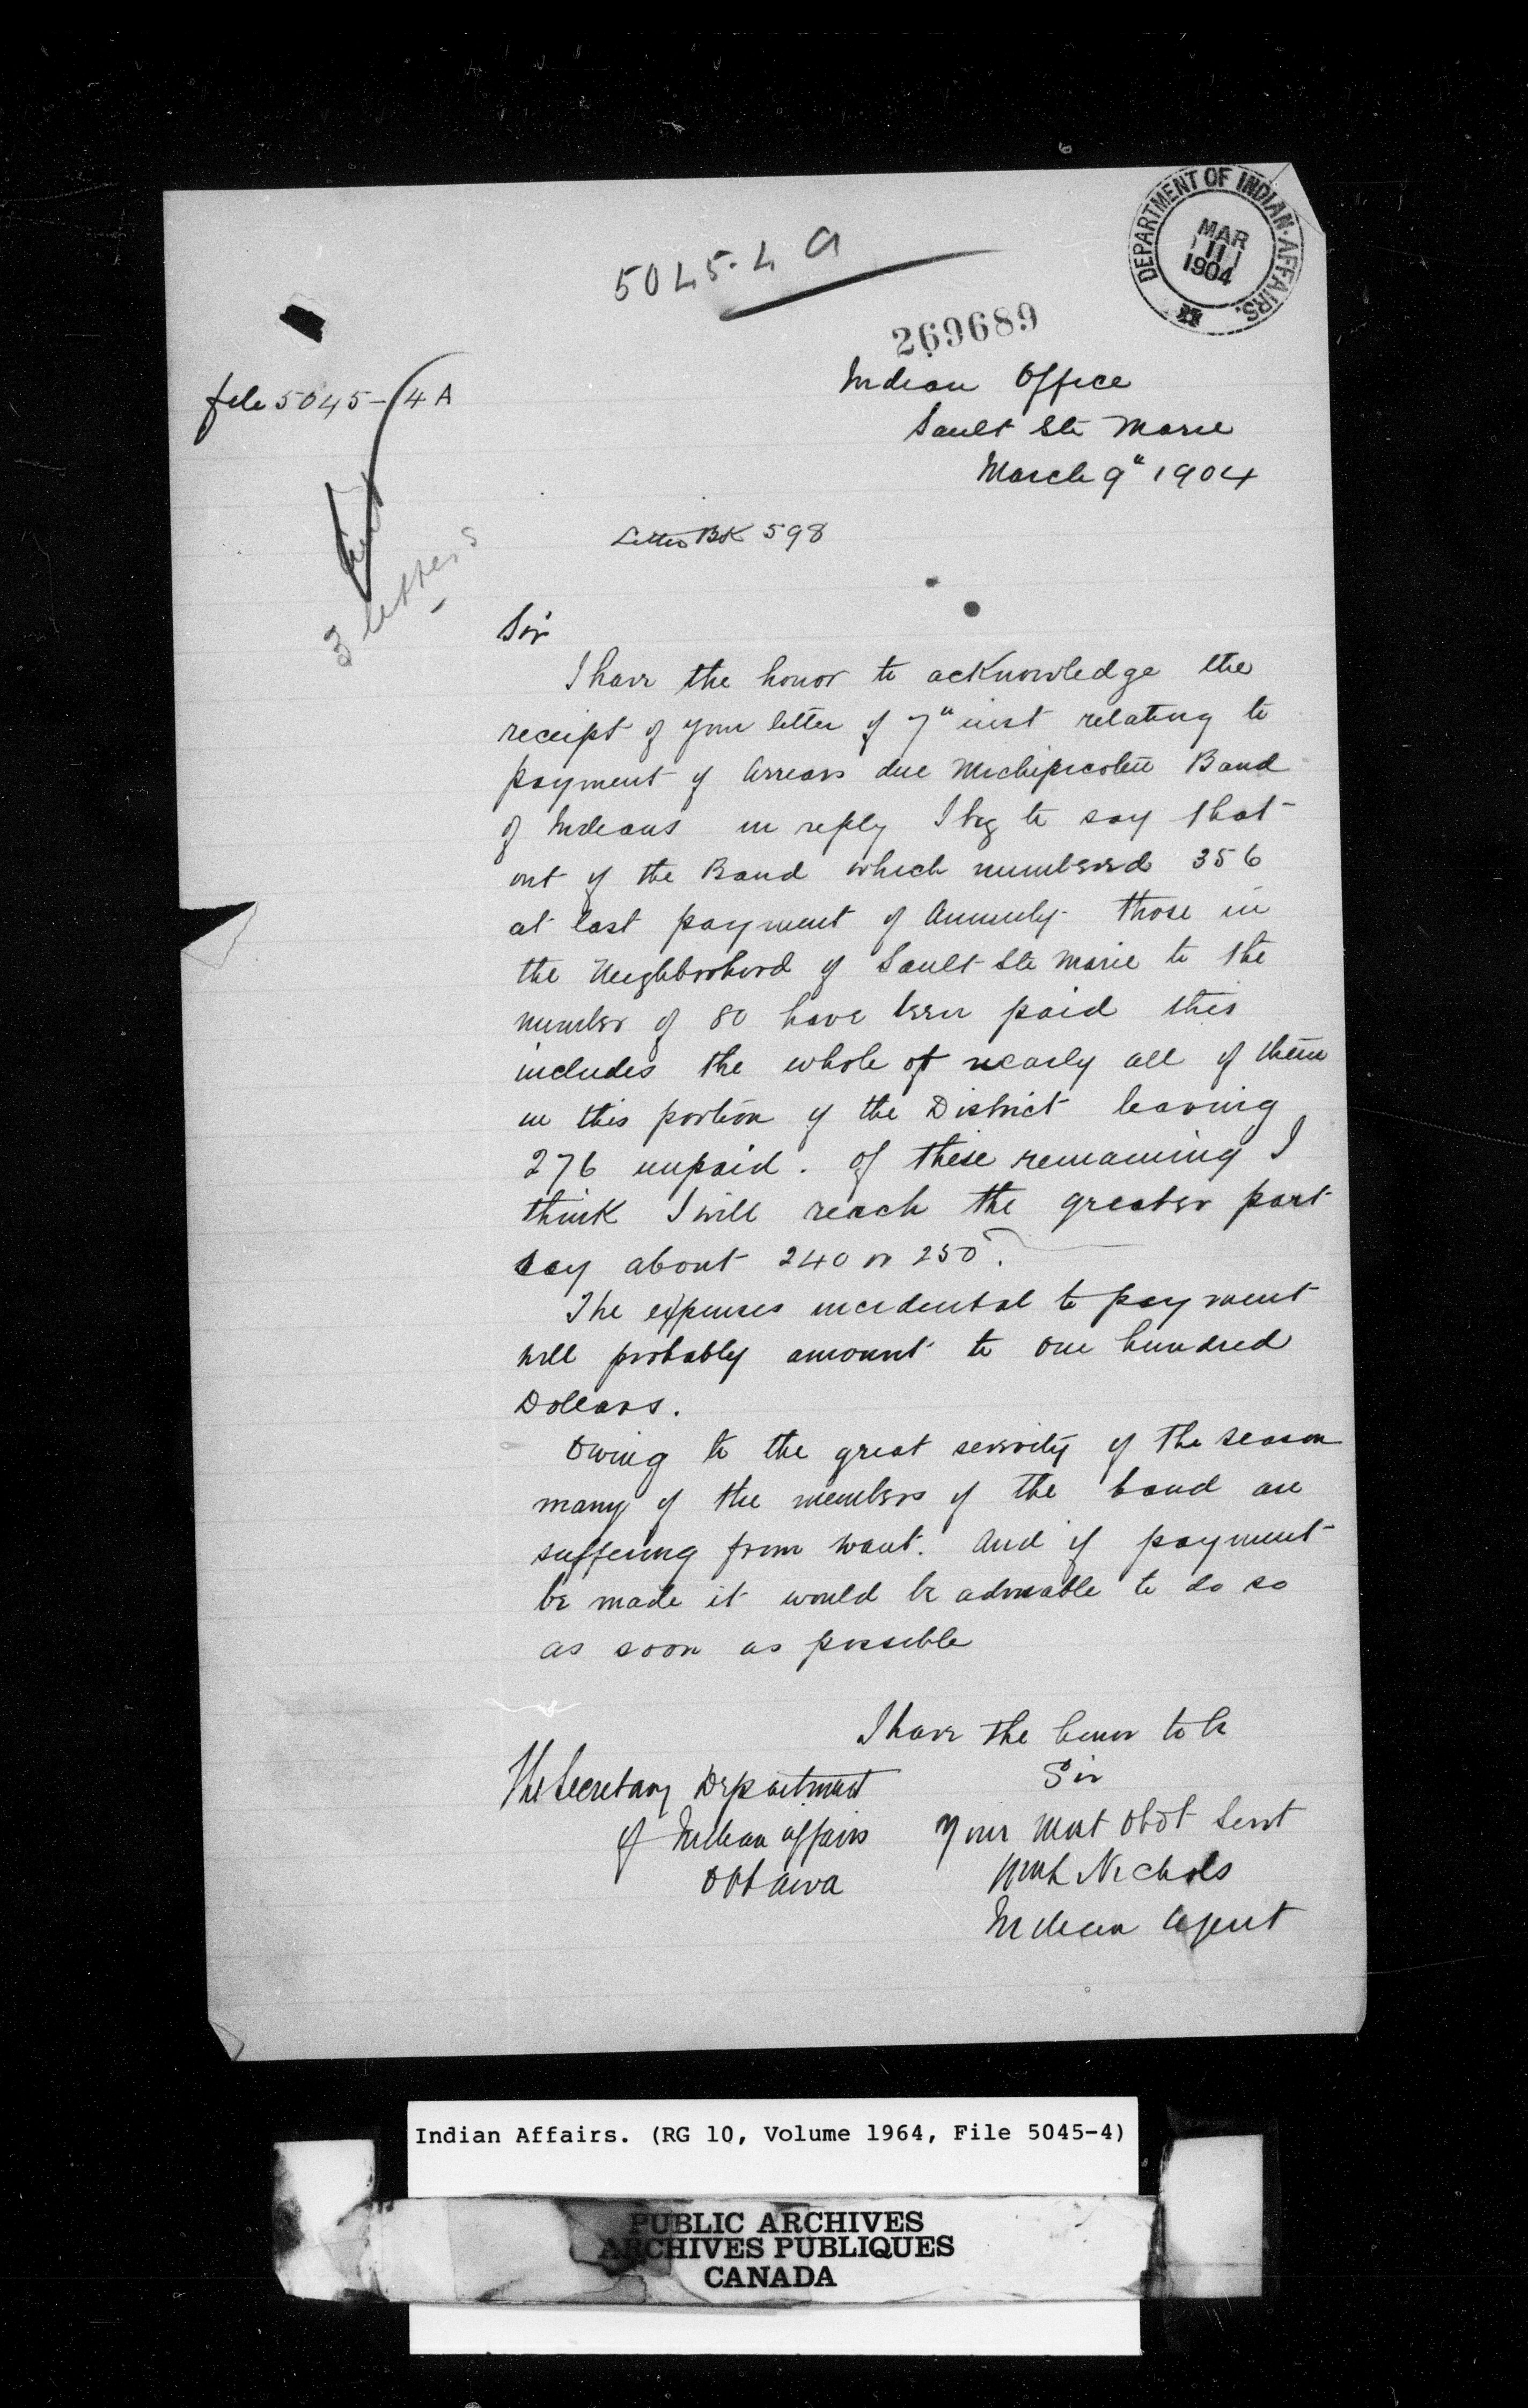 5045-4 A
DEPARTMENT OF INDIAN AFFAIRS.
MAR
11
1904
269689
file 5045-4A
Indian Office
Sault Ste Marie
March 9" 1904
Letter BK 598
3 letters
Sir
I have the honor to acknowledge the
receipt of your letter of 7" inst relating to
payment of Arrears due Michipicoten Band
of Indians in reply I beg to say that
out of the Band which numbered 356
at last payment of Annuity those in
the Neighborhood of Sault Ste Marie to the
number of 80 have been paid this
includes the whole of nearly all of them
in this portion of the District leaving
276 unpaid. Of these remaining I
think I will reach the greater part
say about 240 or 250.
The expenses incidental to payment
will probably amount to one hundred
Dollars.
Owing to the great severity of the season
many of the members of the band are
suffering from want. And if payment
be made it would be advisable to do so
as soon as possible
I have the honor to be
Sir
Your Most Obdt Servt
Wm L Nichols
Indian Agent
The Secretary Department
of Indian Affairs
Ottawa
Indian Affairs. (RG 10, Volume 1964, File 5045-4)
PUBLIC ARCHIVES
ARCHIVES PUBLIQUES
CANADA